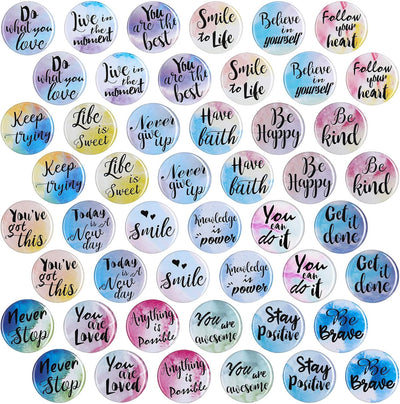 Do
what you
love
Live in the
moment
You
are the
best
Smile
to Life
Believe
in
yourself
Follow
your
heart
Do
what you
love
Live in the
moment
You
are the
best
Smile
to Life
Believe
in
yourself
Follow
your
heart
Keep
trying
Life
is
Sweet
Never
give up
Have
faith
Be
Happy
Be
kind
Keep
trying
Life
is
Sweet
Never
give up
Have
faith
Be
Happy
Be
kind
You've
got
this
Today
is A
New
day
Smile
Knowledge
is
power
You
can
do it
Get it
done
You've
got
this
Today
is A
New
day
Smile
Knowledge
is
power
You
can
do it
Get it
done
Never
Stop
You
are
Loved
Anything
is
Possible
You are
awesome
Stay
Positive
Be
Brave
Never
Stop
You
are
Loved
Anything
is
Possible
You are
awesome
Stay
Positive
Be
Brave